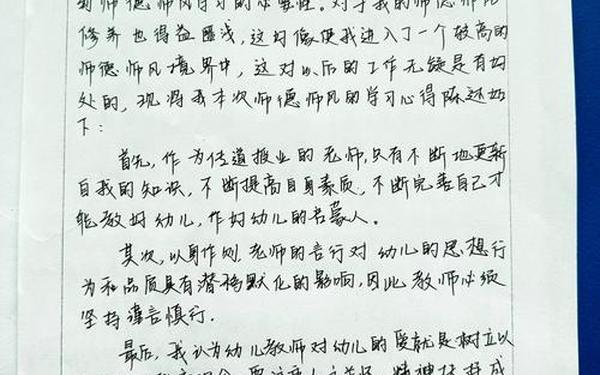 到师德师风学习的必要性。对于我的师德师风
修养也得益匪浅，这好像使我进入了一个较高的
师德师风境界中，这对以后的工作无疑是有好
处的，现将我本次师德师风的学习心得陈述如
下：
首先，作为传道授业的老师，只有不断地更新
自我的知识，不断提高自身素质，不断完善自己才
能教好幼儿，作好幼儿的启蒙人。
其次，以身作则，老师的言行对幼儿的思想行
为和品质具有潜移默化的影响，因此教师必须
坚持谨言慎行．
最后，我认为幼儿教师对幼儿的爱就是树立以